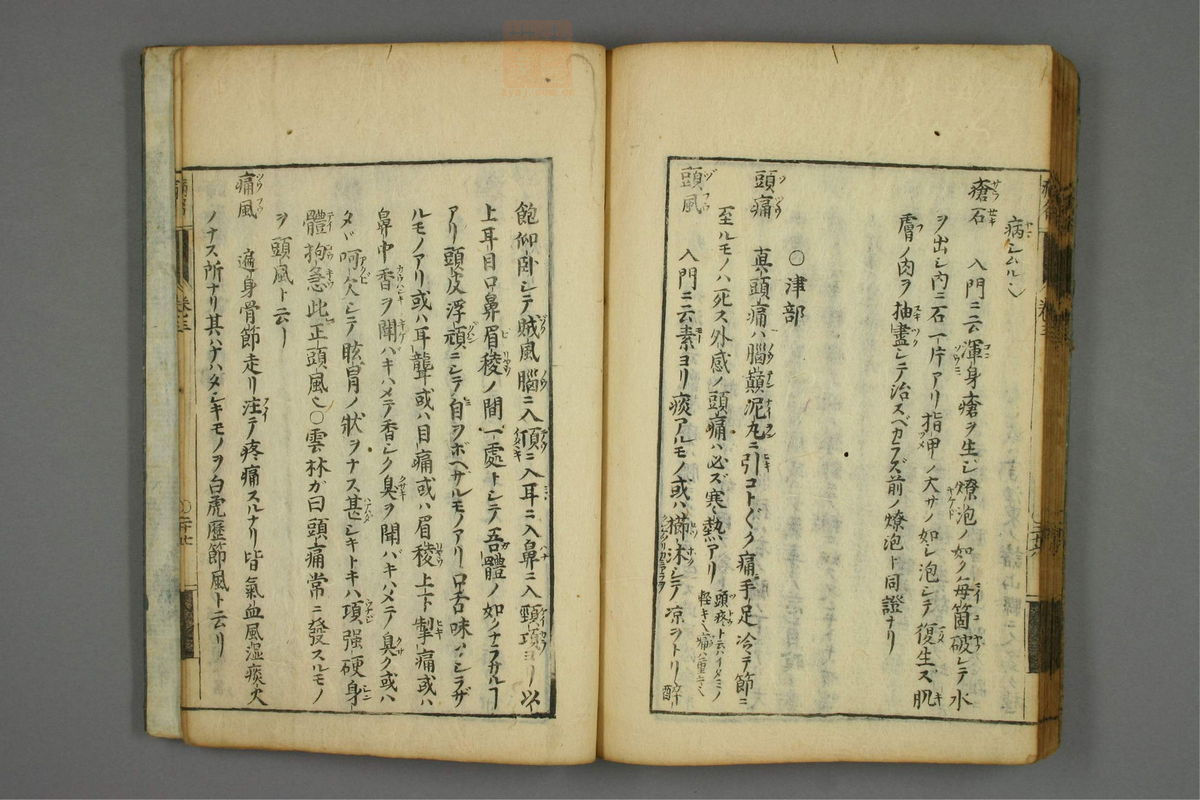 病シムルヿ
瘡石 入門ニ云渾身瘡ヲ生シ燎泡ノ如ク每箇破レテ水
ヲ出シ内ニ石一片アリ指甲ノ大サノ如レ泡レテ復生ズ肌
膚ノ肉ヲ抽盡シテ治スベカラズ前ノ燎泡ト同證ナリ
○津部
頭痛 眞頭痛ハ腦巔泥丸ニ引コトゴトク痛手足冷テ節ニ
至ルモノハ死ス外感ノ頭痛ハ必ズ寒熱アリ 頭疼ト云ハイタミノ軽キ也痛ハ重キ也
頭風 入門ニ云素ヨリ痰アルモノ或ハ櫛沐シテ凉ヲトリ醉
飽仰卧シテ賊風腦ニ入頂ニ入耳ニ入鼻ニ入頸項ヨリ以
上耳目口鼻眉稜ノ間一處トシテ吾體ノ如ノナラサルヿ
アリ頭皮浮頑ニシテ自ヲボヘサルモノアリ口舌味ハシラザ
ルモノアリ或ハ耳聾或ハ目痛或ハ眉稜上下掣痛或ハ
鼻中香ヲ聞バキハメテ香シク臭ヲ聞バキハメテ臭ク或ハ
タヾ呵欠シテ眩冒ノ狀ヲナス甚シキトキハ項强硬身
體拘急此正頭風也○雲林ガ曰頭痛常ニ發スルモノ
ヲ頭風ト云
痛風 遍身骨節走リ注テ疼痛スルナリ皆氣血風湿痰火
ノナス所ナリ其ハナハダシキモノヲ白虎歷節風ト云リ